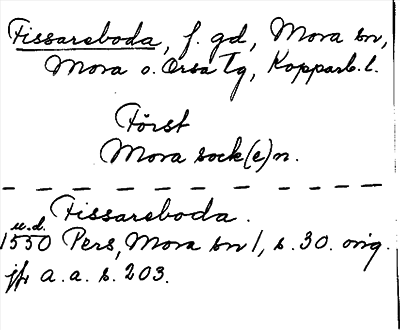 Fissareboda, f. gd, Mora sn,
Mora o. Orsa Tg, Kopparb. l.
Först
Mora sock(e)n.
Fissareboda.
u.d.
1550 Pers, Mora sn 1, s. 30. orig.
jfr a. a. s. 203.